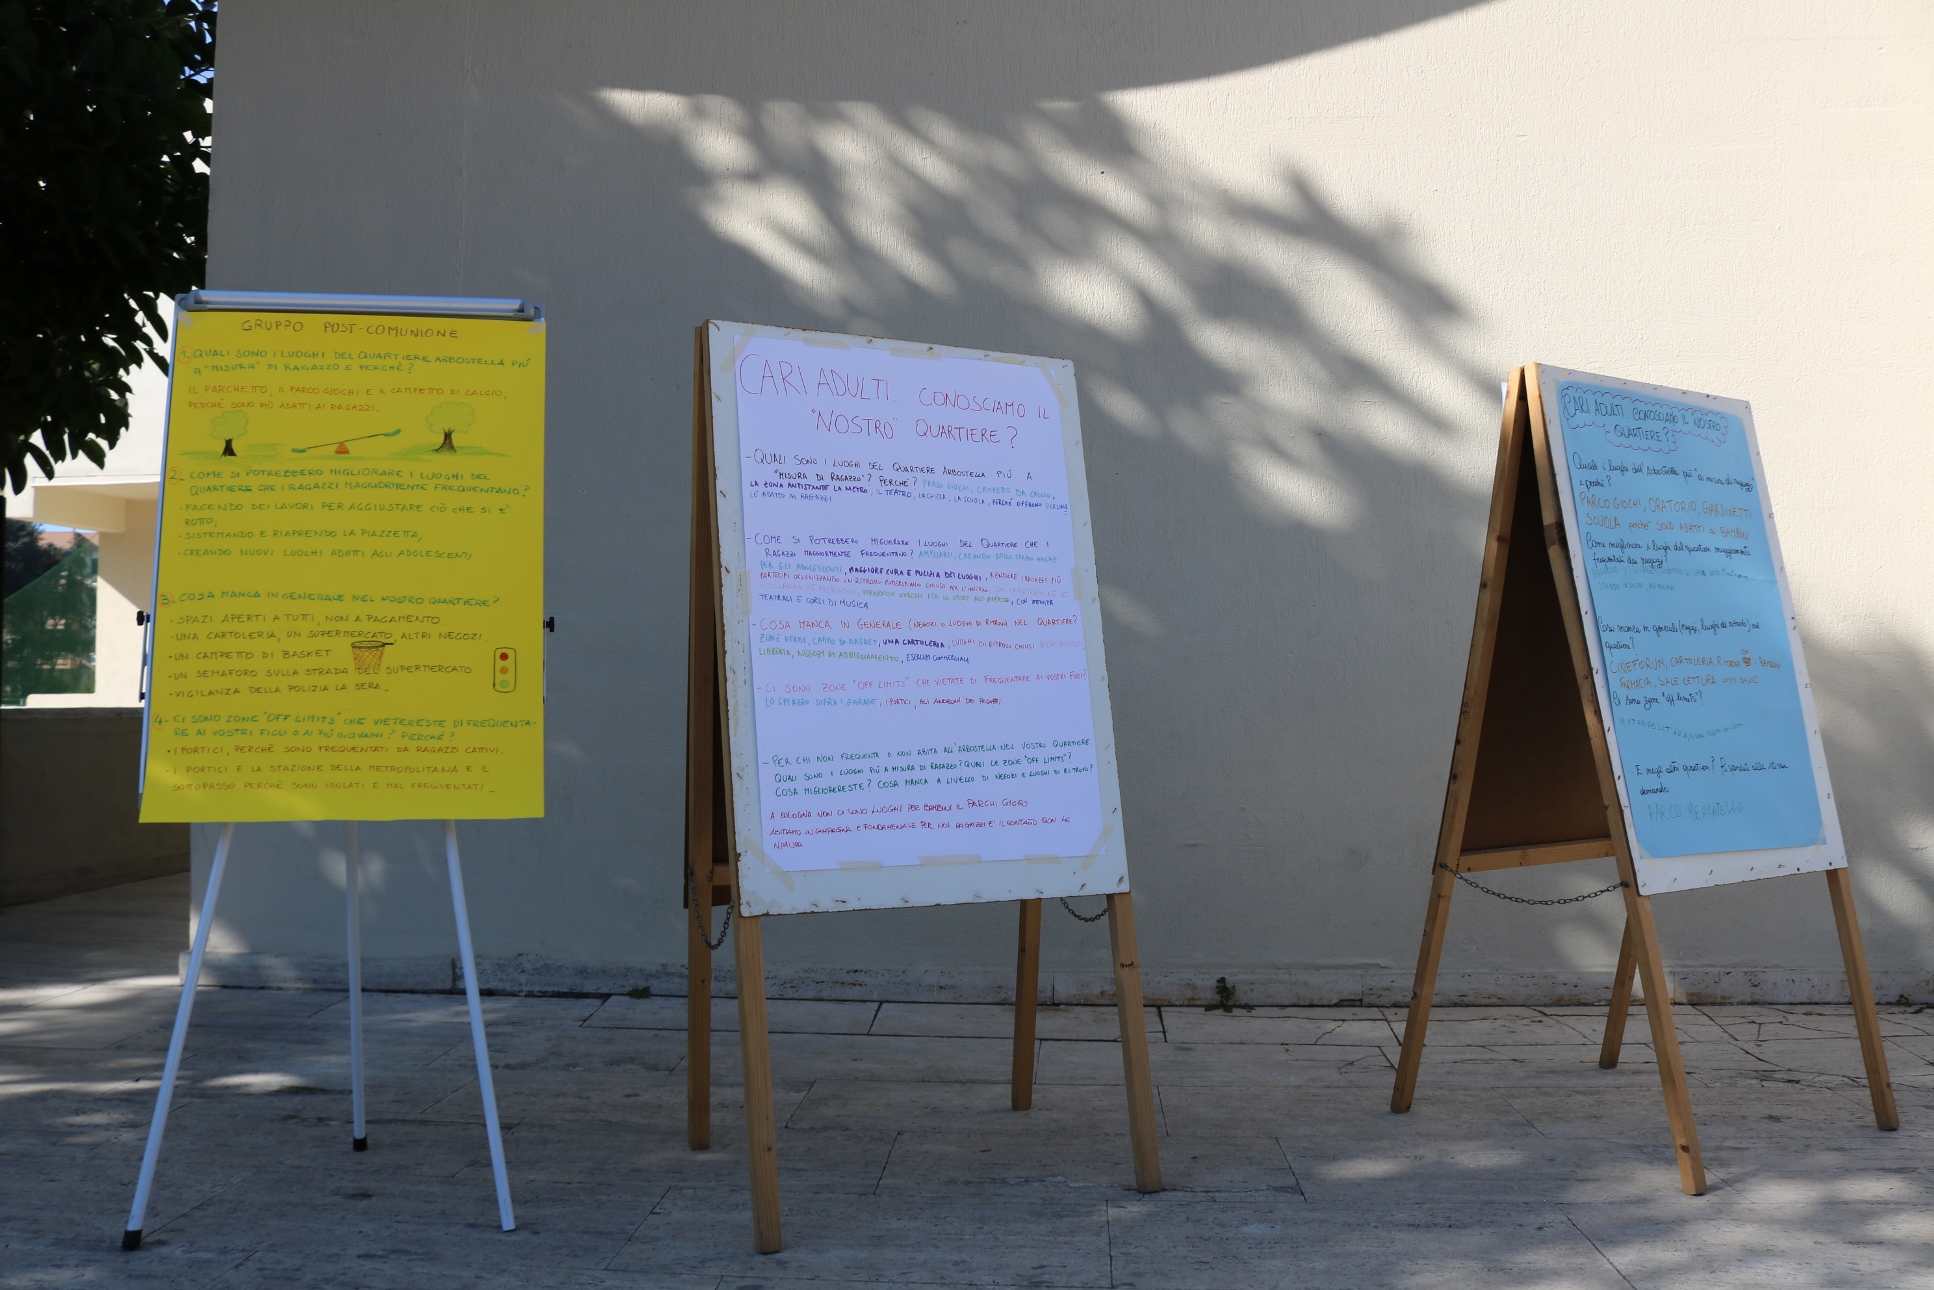 GRUPPO POST-COMUNIONE
1. QUALI SONO I LUOGHI DEL QUARTIERE ARBOSTELLA PIÚ
A "MISURA" DI RAGAZZO E PERCHÈ?
IL PARCHETTO, IL PARCO GIOCHI E IL CAMPETTO DI CALCIO,
PERCHÈ SONO PIÚ ADATTI AI RAGAZZI.
2. COME SI POTREBBERO MIGLIORARE I LUOGHI DEL
QUARTIERE CHE I RAGAZZI MAGGIORMENTE FREQUENTANO?
-FACENDO DEI LAVORI PER AGGIUSTARE CIÒ CHE SI È
ROTTO;
-SISTEMANDO E RIAPRENDO LA PIAZZETTA;
-CREANDO NUOVI LUOGHI ADATTI AGLI ADOLESCENTI;
3. COSA MANCA IN GENERALE NEL NOSTRO QUARTIERE?
• SPAZI APERTI A TUTTI, NON A PAGAMENTO.
• UNA CARTOLERIA, UN SUPERMERCATO, ALTRI NEGOZI.
•UN CAMPETTO DI BASKET
•UN SEMAFORO SULLA STRADA DEL SUPERMERCATO
•VIGILANZA DELLA POLIZIA LA SERA.
4- CI SONO ZONE "OFF LIMITS" CHE VIETERESTE DI FREQUENTA-
RE AI VOSTRI FIGLI O AI PIÚ GIOVANI? PERCHÈ?
•I PORTICI, PERCHÈ SONO FREQUENTATI DA RAGAZZI CATTIVI.
• I PORTICI E LA STAZIONE DELLA METROPOLITANA E IL
SOTTOPASSO PERCHÈ SONO ISOLATI E MAL FREQUENTATI.
CARI ADULTI... CONOSCIAMO IL
"NOSTRO" QUARTIERE?
-QUALI SONO I LUOGHI DEL QUARTIERE ARBOSTELLA PIÚ A
"MISURA DI RAGAZZO"? PERCHÉ? PARCO GIOCHI, CAMPETTO DA CALCIO,
LA ZONA ANTISTANTE LA METRO, IL TEATRO, LA CHIESA, LA SCUOLA, PERCHÉ OFFRONO
LE ADATTO AI RAGAZZI
-COME SI POTREBBERO MIGLIORARE I LUOGHI DEL QUARTIERE CHE I
RAGAZZI MAGGIORMENTE FREQUENTANO? AMPLIARLI, CREANDO DELLO SPAZIO ANCHE
PER GLI ADOLESCENTI, MAGGIORE CURA E PULIZIA DEI LUOGHI, RENDERE I RAGAZZI PIÙ
PARTECIPI ORGANIZZANDO UN RITROVO POMERIDIANO
TEATRALI E CORSI DI MUSICA
-COSA MANCA IN GENERALE (NEGOZI O LUOGHI DI RITROVO) NEL QUARTIERE?
ZONE VERDI, CAMPO DA BASKET, UNA CARTOLERIA, LUOGHI DI RITROVO CHIUSI
LIBRERIA, NEGOZI DI ABBIGLIAMENTO, ESERCIZI COMMERCIALI
-CI SONO ZONE "OFF LIMITS" CHE VIETATE DI FREQUENTARE AI VOSTRI FIGLI?
LO SPIAZZO SOPRA I GARAGE, I PORTICI, GLI ANDRONI DEI PALAZZI
-PER CHI NON FREQUENTA O NON ABITA ALL'ARBOSTELLA NEL VOSTRO QUARTIERE
QUALI SONO I LUOGHI PIÚ A MISURA DI RAGAZZO? QUALI LE ZONE "OFF LIMITS"?
COSA MIGLIORERESTE? COSA MANCA A LIVELLO DI NEGOZI E LUOGHI DI RITROVO?
A BOLOGNA NON CI SONO LUOGHI PER BAMBINI E PARCHI GIOCO
ABITIAMO IN CAMPAGNA E FONDAMENALE PER NOI RAGAZZI E' IL CONTATTO CON LA
NATURA
CARI ADULTI CONOSCIAMO IL NOSTRO
QUARTIERE?
Quali i luoghi dell'Arbostella più "a misura di ragazzo"
e perché?
PARCO GIOCHI, ORATORIO, GIARDINETTI
SCUOLA perché SONO ADATTI ai BAMBINI
Come migliorare i luoghi del quartiere maggiormente
frequentati dai ragazzi?
Cosa manca in generale (negozi, luoghi di ritrovo) nel
quartiere?
CINEFORUM, CARTOLERIA, RITROVO BAMBINI
FARMACIA, SALE LETTURA,
Ci sono zone "off limits"?
E negli altri quartieri? Rispondete alle stesse
domande
PARCO MERCATELLO